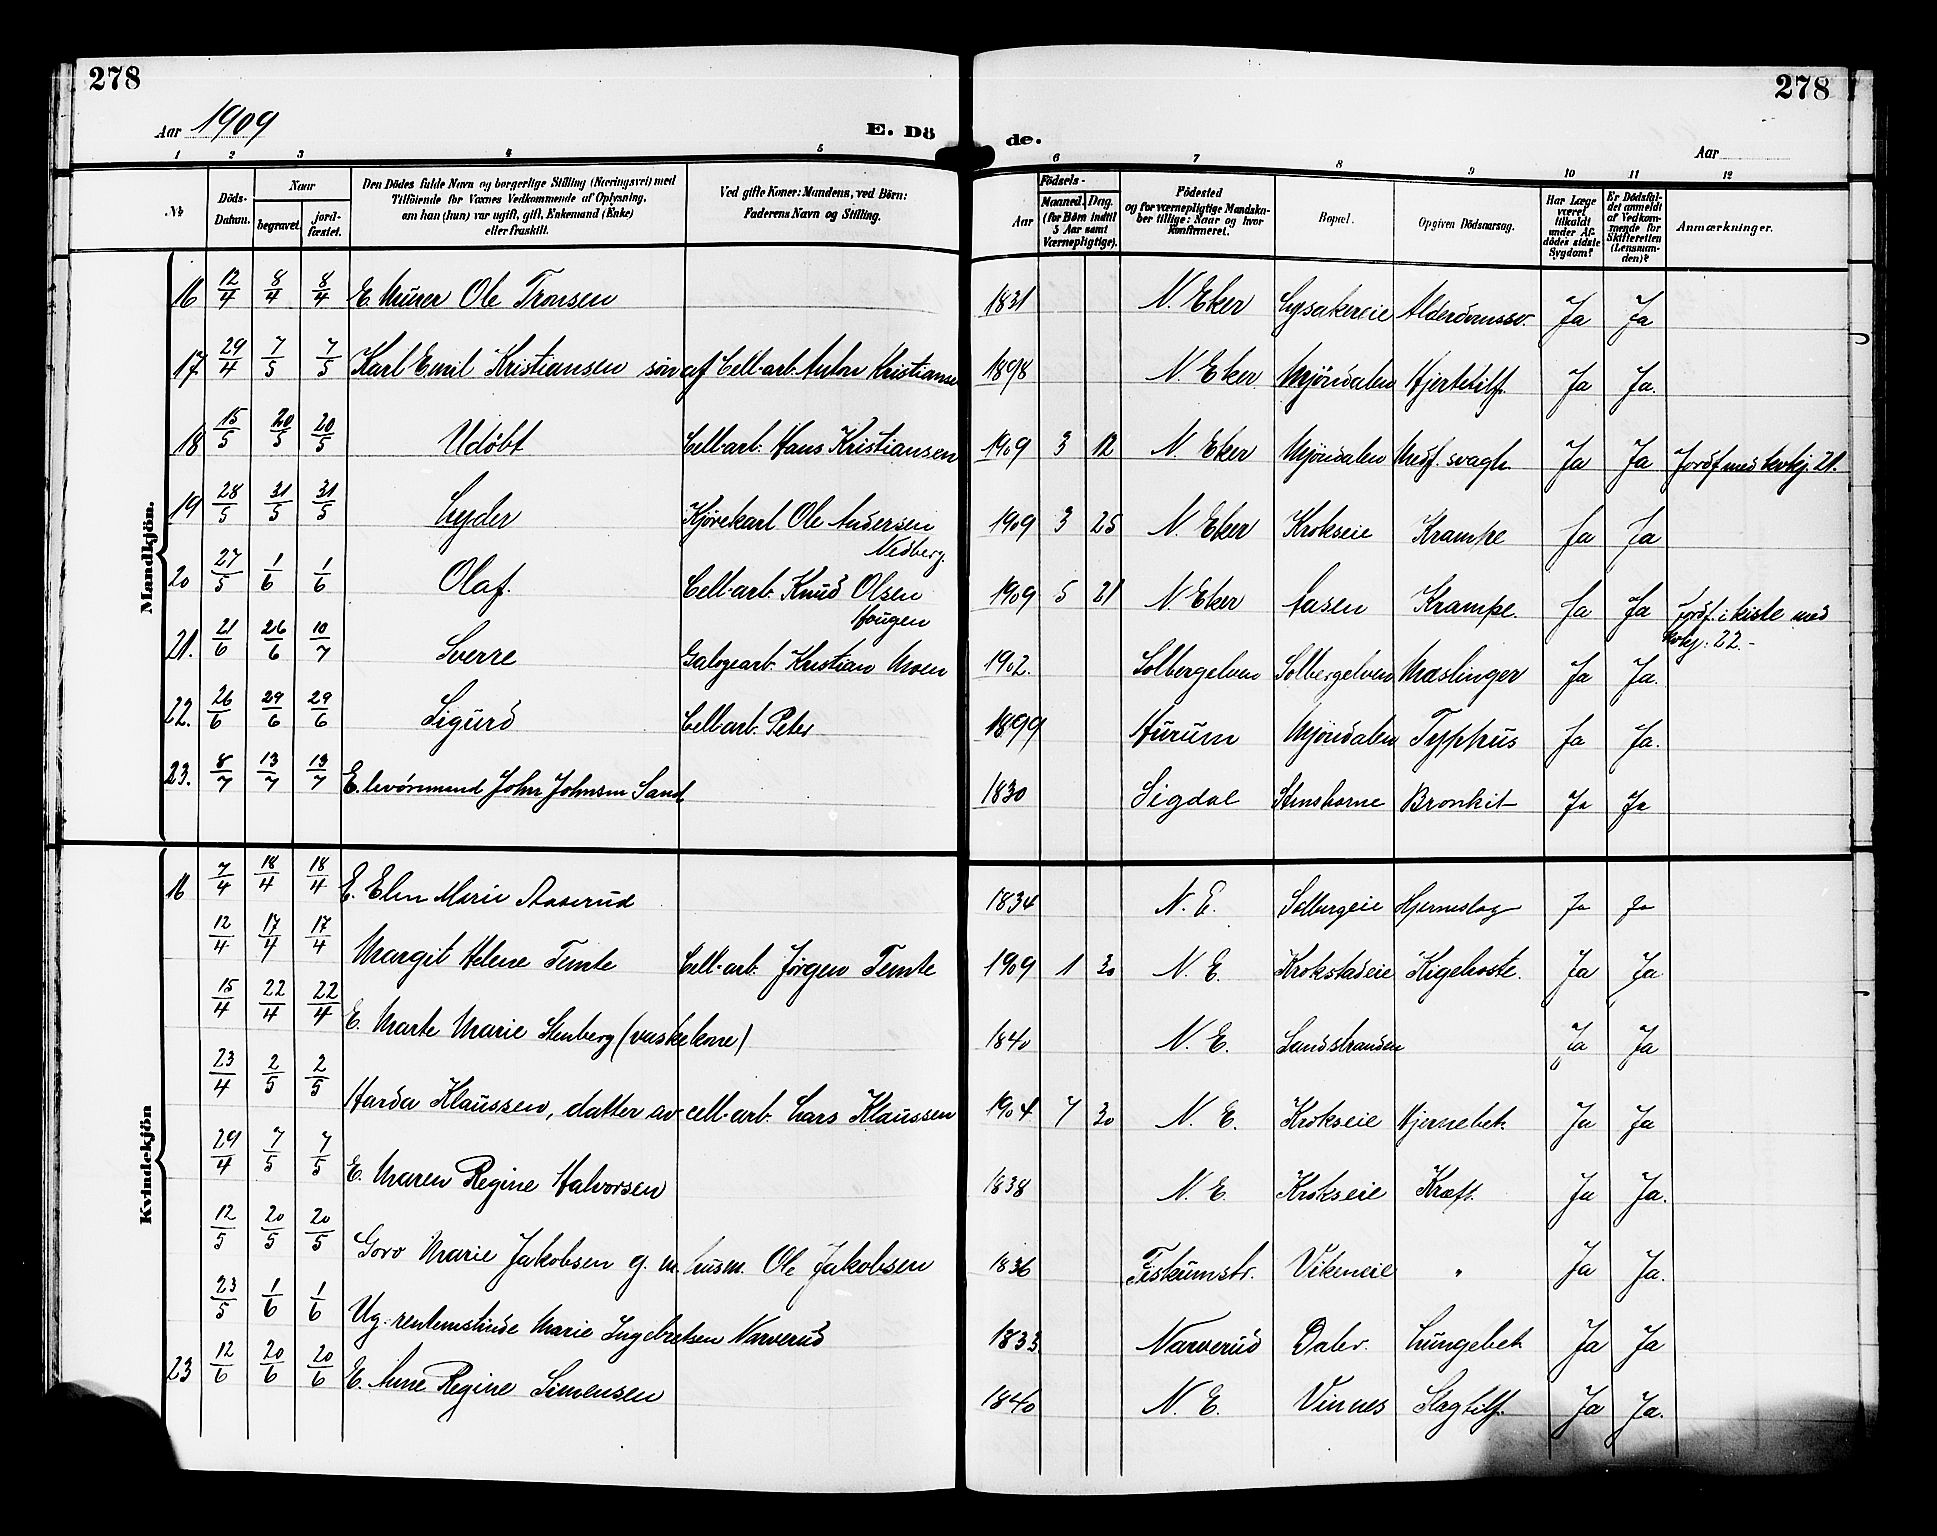 278
278
Aar 1909
E. Dö de.
Aar
1 2 3 4 5 6 7 8 9 10 11 12
№
Döds-Datum.
Naar
begravet.
jord-fæstet.
Den Dödes fulde Navn og borgerlige Stilling (Næringsvei) med Tilföiende for Voxnes Vedkommende af Oplysning, om han (hun) var ugift, gift, Enkemand (Enke) eller fraskilt.
Ved gifte Koner: Mandens, ved Börn: Faderens Navn og Stilling.
Födsels-
Aar
Maaned. Dag.
(for Börn indtil 5 Aar samt Værnepligtige).
Födested og for værnepligtige Mandskaber tillige: Naar og hvor Konfirmeret.
Bopæl.
Opgiven Dödsaarsag.
Har Læge været tilkaldt under Afdödes sidste Sygdom?
Er Dödsfaldet anmeldt af Vedkommende for Skifteretten (Lensmanden)?
Anmærkninger.
Mandkjön.
16 12/4 8/4 8/4 E. Murer Ole Tronsen 1831 N. Eker Lysakereie Alderdomssv. Ja Ja
17 29/4 7/5 7/5 Karl Emil Kristiansen søn af Cell-arb. Anton Kristianse 1898 N. Eker Mjöndalen Hjertetilf. Ja Ja.
18 15/5 20/5 20/5 Udøbt Cellarb. Hans Kristiansen 1909 3 12 N. Eker Mjöndalen Medf. svagh. Ja Ja Jordf med kvkj. 21.
19 28/5 31/5 31/5 Lyder Kjørekarl Ole Andersen Nedberg. 1909 3 25 N. Eker Krokseie Krampe Ja Ja
20 27/5 1/6 1/6 Olaf. Cell-arb. Knud Olsen Haugen 1909 5 21 N. Eker Aasen Krampe. Ja Ja Jordf. i kiste med kvkj: 22.-
21. 21/6 26/6 10/7 Sverre Galogearb. Kristian Moen 1902. Solbergelven Solbergelven Mæslinger Ja Ja.
22. 26/6 29/6 29/6 Sigurd Cellarb. Peter 1899 Hurum Mjöndalen Typhus Ja Ja.
23. 8/7 13/7 13/7 E. levörsmand John Johnsen Sand 1830 Sigdal Bronkit Ja Ja
Kvindekjön
16 7/4 18/4 18/4 E. Elen Marie Aaserud 1834 N. E. Solbergeie Hjerneslag Ja Ja
12/4 17/4 17/4 Margit Helene Temte Cell-arb. Jørgen Temte 1909 1 30 N. E. Krokstadeie Kigehoste. Ja Ja
15/4 22/4 22/4 E. Marte Marie Stenberg (vaskekone) 1840 N. E. Sandstranden Ja Ja
23/4 2/5 2/5 Harda Klaussen, datter av cell-arb. Lars Klaussen 1904 7 30 N. E. Krokseie Hjernebet. Ja Ja
29/4 7/5 7/5 E. Maren Regine Halvorsen 1838 N. E. Krokseie Kræft. Ja Ja.
12/5 20/5 20/5 Goro Marie Jakobsen g. m. husm. Ole Jakobsen 1836 Fiskumstr. Vikeneie " Ja Ja.
23/5 1/6 1/6 Ug. Marie Ingebretsen Narverud 1833. Narverud Daler. Lungebet. Ja Ja
23 12/6 20/6 20/6 E. Anne Regine Simensen 1840 N. E. Vinnes Slagtilf. Ja Ja.